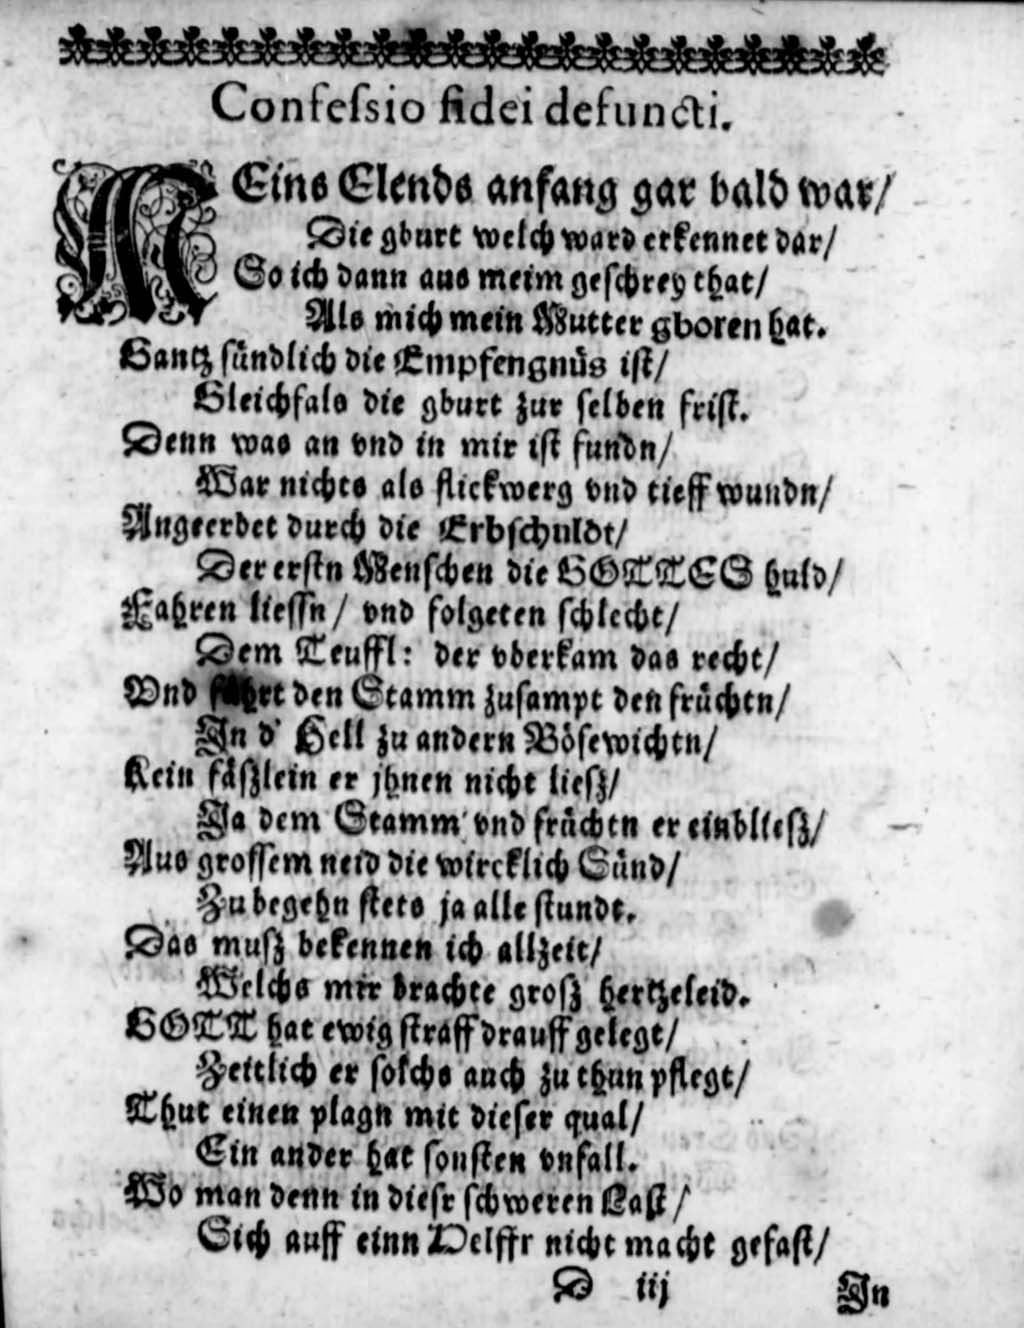 Confeſsio fidei defuncti.
MEins Elends anfang gar bald war/
Die gburt welch ward erkennet dar/
So ich dann aus meim geſchrey that/
Als mich mein Mutter gboren hat.
Gantz ſündlich die Empfengnüs iſt/
Gleichfals die gburt zur ſelben friſt.
Denn was an vnd in mir iſt fundn/
War nichts als flickwerg vnd tieff wundn/
Angeerbet durch die Erbſchuldt/
Der erſtn Menſchen die GOTTES huld/
Fahren lieſſn/ vnd folgeten ſchlecht/
Dem Teuffl: der vberkam das recht/
Vnd führt den Stamm zuſampt den früchtn/
In d' Hell zu andern Böſewichtn/
Kein fäſzlein er jhnen nicht lieſz/
Ja dem Stamm vnd früchtn er einblieſz/
Aus groſſem neid die wircklich Sünd/
Zu begehn ſtets ja alle ſtundt.
Das muſz bekennen ich allzeit/
Welchs mir brachte groſz hertzeleid.
GOTT hat ewig ſtraff drauff gelegt/
Zeitlich er ſolchs auch zu thun pflegt/
Thut einen plagn mit dieſer qual/
Ein ander hat ſonſten vnfall.
Wo man denn in dieſr ſchweren Laſt/
Sich auff einn Helffr nicht macht gefaſt/
D iij In